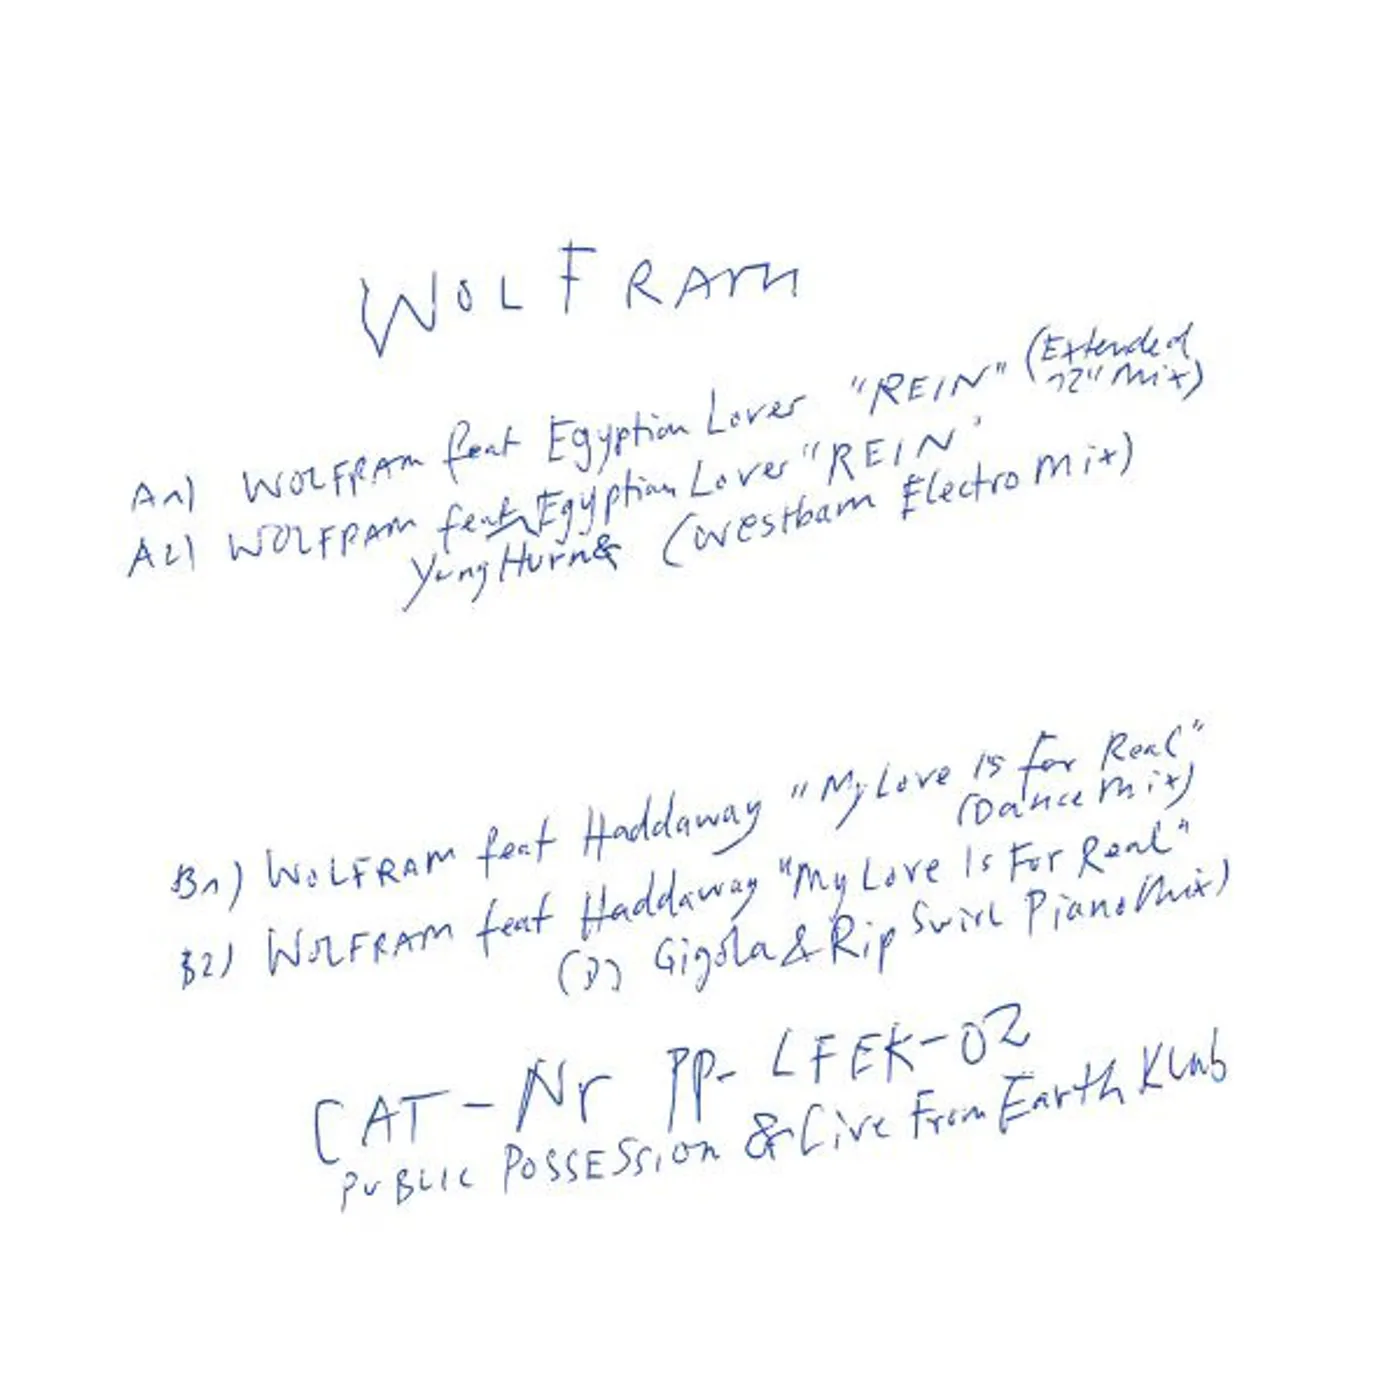 WOLFRAM
A1) WOLFRAM feat Egyptian Lover "REIN" (Extended 12" Mix)
A2) WOLFRAM feat Yung Hurn & Egyptian Lover "REIN"
(Westbam Electro Mix)
B1) WOLFRAM feat Haddaway "My Love Is For Real"
(Dance Mix)
B2) WOLFRAM feat Haddaway "My Love Is For Real"
Gigola & Rip Swirl Piano Mix)
CAT-Nr PP-LFEK-02
PUBLIC POSSESSION & Live From Earth Klub